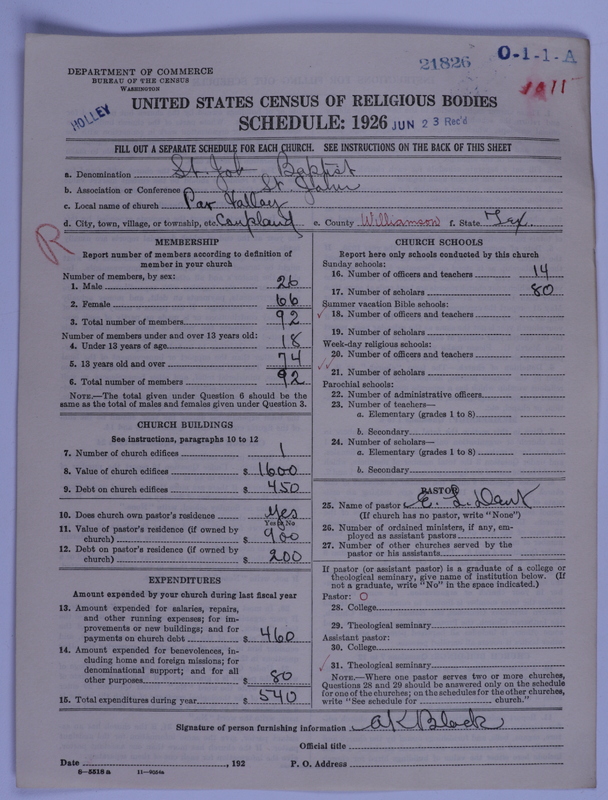 21826
O-1-1-A
1011
DEPARTMENT OF COMMERCE
BUREAU OF THE CENSUS
WASHINGTON
HOLLEY
UNITED STATES CENSUS OF RELIGIOUS BODIES
SCHEDULE: 1926 JUN 23 Rec'd
FILL OUT A SEPARATE SCHEDULE FOR EACH CHURCH. SEE INSTRUCTIONS ON THE BACK OF THIS SHEET
a. Denomination St. Job Baptist
b. Association or Conference St John
c. Local name of church Pax Valley
d. City, town, village, or township, etc. Coupland e. County Williamson f. State Tex
R
MEMBERSHIP
Report number of members according to definition of
member in your church
Number of members, by sex:
1. Male 26
2. Female 66
3. Total number of members 92
Number of members under and over 13 years old:
4. Under 13 years of age 18
5. 13 years old and over 74
6. Total number of members 92
NOTE.—The total given under Question 6 should be
same as the total of males and females given under Question 3.
CHURCH BUILDINGS
See instructions, paragraphs 10 to 12
7. Number of church edifices 1
8. Value of church edifices $ 1600
9. Debt on church edifices $ 450
10. Does church own pastor's residence yes
Yes or No
11. Value of pastor's residence (if owned by
church) $ 900
12. Debt on pastor's residence (if owned by
church) $ 200
EXPENDITURES
Amount expended by your church during last fiscal year
13. Amount expended for salaries, repairs,
and other running expenses; for im-
provements or new buildings; and for
payments on church debt $ 460
14. Amount expended for benevolences, in-
cluding home and foreign missions; for
denominational support; and for all
other purposes $ 80
15. Total expenditures during year $ 540
CHURCH SCHOOLS
Report here only schools conducted by this church
Sunday schools:
16. Number of officers and teachers 14
17. Number of scholars 80
Summer vacation Bible schools:
18. Number of officers and teachers
19. Number of scholars
Week-day religious schools:
20. Number of officers and teachers
21. Number of scholars
Parochial schools:
22. Number of administrative officers
23. Number of teachers—
a. Elementary (grades 1 to 8)
b. Secondary
24. Number of scholars—
a. Elementary (grades 1 to 8)
b. Secondary
PASTOR
25. Name of pastor E. L. Dant
(If church has no pastor, write "None")
26. Number of ordained ministers, if any, em-
ployed as assistant pastors
27. Number of other churches served by the
pastor or his assistants
If pastor (or assistant pastor) is a graduate of a college or
theological seminary, give name of institution below. (If
not a graduate, write "No" in the space indicated.)
Pastor: O
28. College
29. Theological seminary
Assistant pastor:
30. College
31. Theological seminary
NOTE.—Where one pastor serves two or more churches,
Questions 28 and 29 should be answered only on the schedule
for one of the churches; on the schedules for the other churches,
write "See schedule for church."
Signature of person furnishing information A K Block
Official title
Date , 192 P. O. Address
8-5518 a 11-9264a